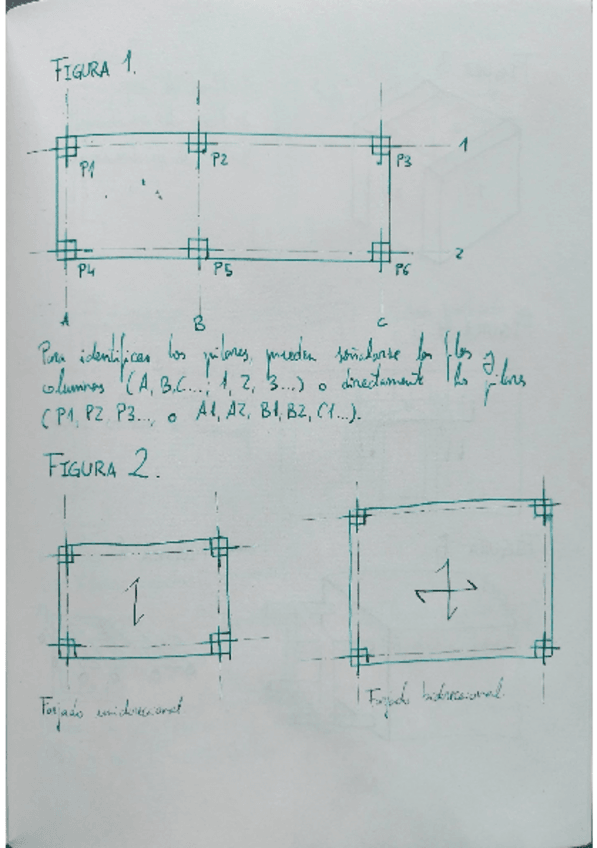 FIGURA 1.
1
P1 P2 P3
2
P4 P5 P6
A B C
Para identificar los pilares, pueden señalarse las filas y
columnas (A, B, C...; 1, 2, 3...) o directamente los pilares
(P1, P2, P3..., o A1, A2, B1, B2, C1...).
FIGURA 2.
Forjado unidireccional
Forjado bidireccional.